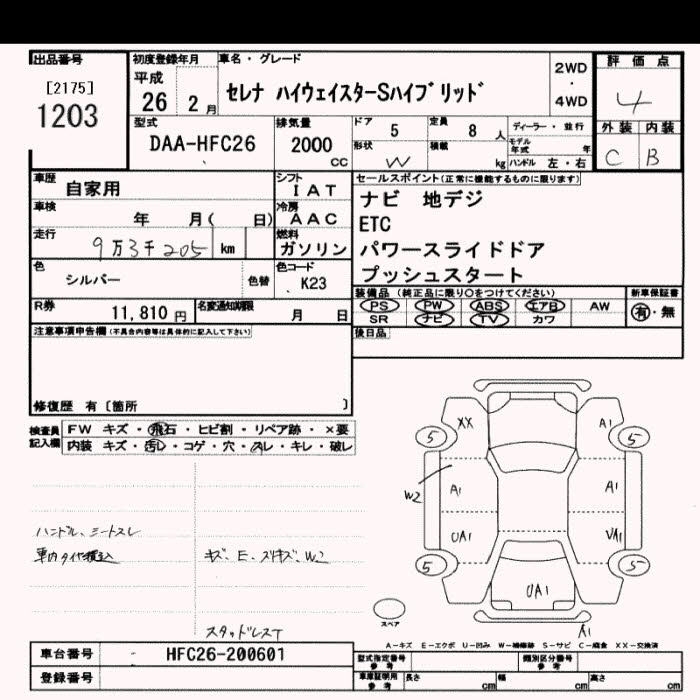 出品番号
[2175]
1203
初度登録年月
平成
26 2 月
車名・グレード
セレナ ハイウェイスターSハイブリッド
2WD
・
4WD
評価点
4
外装 内装
C B
型式
DAA-HFC26
排気量
2000
CC
ドア
5
定員
8 人
形状
W
積載
kg
ディーラー・並行
モデル年式 年
ハンドル 左・右
車歴
自家用
シフト
IAT
車検
年 月( 日)
冷房
AAC
走行
9万3千205 km
燃料
ガソリン
色
シルバー
色替
色コード
K23
R券
11,810 円
名変通知期限
月 日
セールスポイント(正常に機能するものに限ります)
ナビ 地デジ
ETC
パワースライドドア
プッシュスタート
装備品 (純正品に限り○をつけてください)
新車保証書
PS PW ABS エアB AW
SR ナビ TV カワ
有・無
後日品
注意事項申告欄(不具合内容等は具体的に記入して下さい)
修復歴 有〔箇所 〕
検査員
記入欄
FW キズ・飛石・ヒビ割・リペア跡・×要
内装 キズ・汚レ・コゲ・穴・スレ・キレ・破レ
ハンドル、シートスレ
車内タイヤ積込
キズ、E、スリキズ、W2
スタッドレスT
XX A1
5 5
W2
A1 A1
UA1 UA1
5 5
UA1
A1
スペア
A－キズ E－エクボ U－凹み W－補修跡 S－サビ C－腐食 XX－交換済
車台番号
HFC26-200601
登録番号
型式指定番号
参考
類別区分番号
参考
車庫証明用
参考
長さ cm
幅 cm
高さ cm